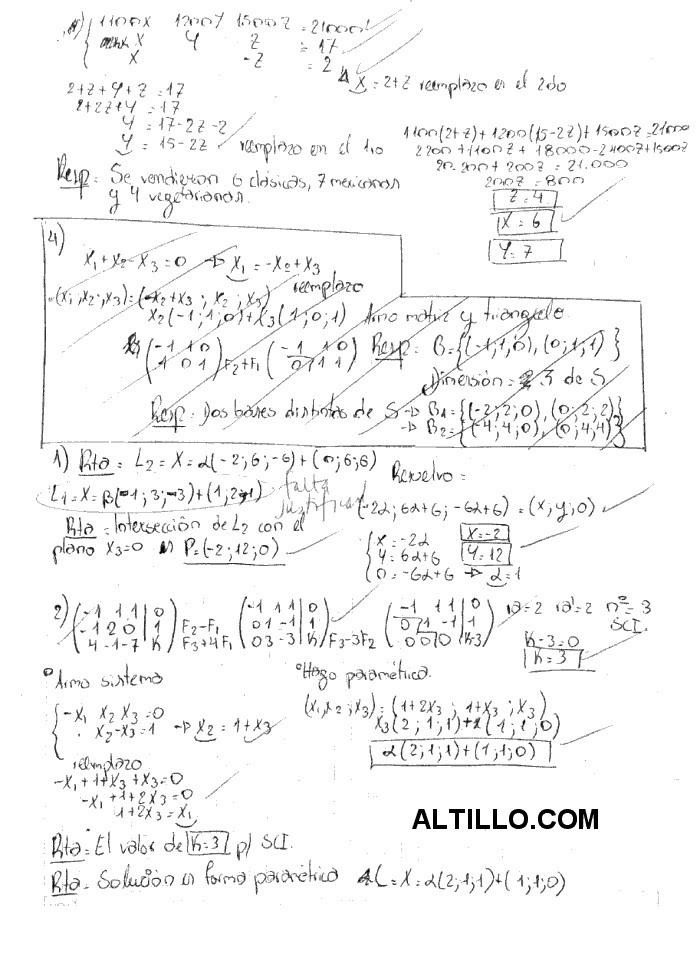 1100X 1200Y 1500Z = 21000
X Y Z = 17
X -Z = 2
X = 2+Z reemplazo en el 2do
2+Z+Y+Z = 17
2+2Z+Y = 17
Y = 17-2Z-2
Y = 15-2Z reemplazo en el 1ro
1100(2+Z)+1200(15-2Z)+1500Z=21000
2200+1100Z+18000-2400Z+1500Z
20.200+200Z=21.000
200Z=800
Z=4
X=6
Y=7
Resp: Se vendieron 6 clásicas, 7 mexicanas
y 4 vegetarianas.
4)
X1+X2-X3=0 → X1=-X2+X3
reemplazo
(X1;X2;X3)=(-X2+X3; X2; X3)
X2(-1;1;0)+X3(1;0;1) Armo matriz y triangulo
(-1 1 0 / 1 0 1) F2+F1 (-1 1 0 / 0 1 1) Resp: B={(-1,1,0),(0;1,1)}
Dimensión = 3 de S
Resp: Dos bases distintas de S → B1={(-2;2;0),(0;2;2)}
→ B2={(-4;4;0),(0;4;4)}
1) Rta: L2=X=α(-2;6;-6)+(0;6;6)
L1=X=β(-1;3;-3)+(1;2;1) falta
justificar
Resuelvo:
(-2α;6α+6;-6α+6)=(x;y;0)
Rta: Intersección de L2 con el
plano X3=0 P=(-2;12;0)
X=-2α X=-2
Y=6α+6 Y=12
0=-6α+6 → α=1
2) (-1 1 1|0 / -1 2 0|1 / 4 -1 -7|K) F2-F1 F3+4F1 (-1 1 1|0 / 0 1 -1|1 / 0 3 -3|K) F3-3F2 (-1 1 1|0 / 0 1 -1|1 / 0 0 0|K-3)
n°=3
SCI.
K-3=0
K=3
Armo sistema
-X1 X2 X3=0
X2-X3=1 → X2=1+X3
reemplazo
-X1+1+X3+X3=0
-X1+1+2X3=0
1+2X3=X1
Hago paramétrica.
(X1;X2;X3)=(1+2X3; 1+X3; X3)
X3(2;1;1)+(1;1;0)
α(2;1;1)+(1;1;0)
ALTILLO.COM
Rta: El valor de K=3 p/ SCI.
Rta: Solución en forma paramétrica L=X=α(2;1;1)+(1;1;0)